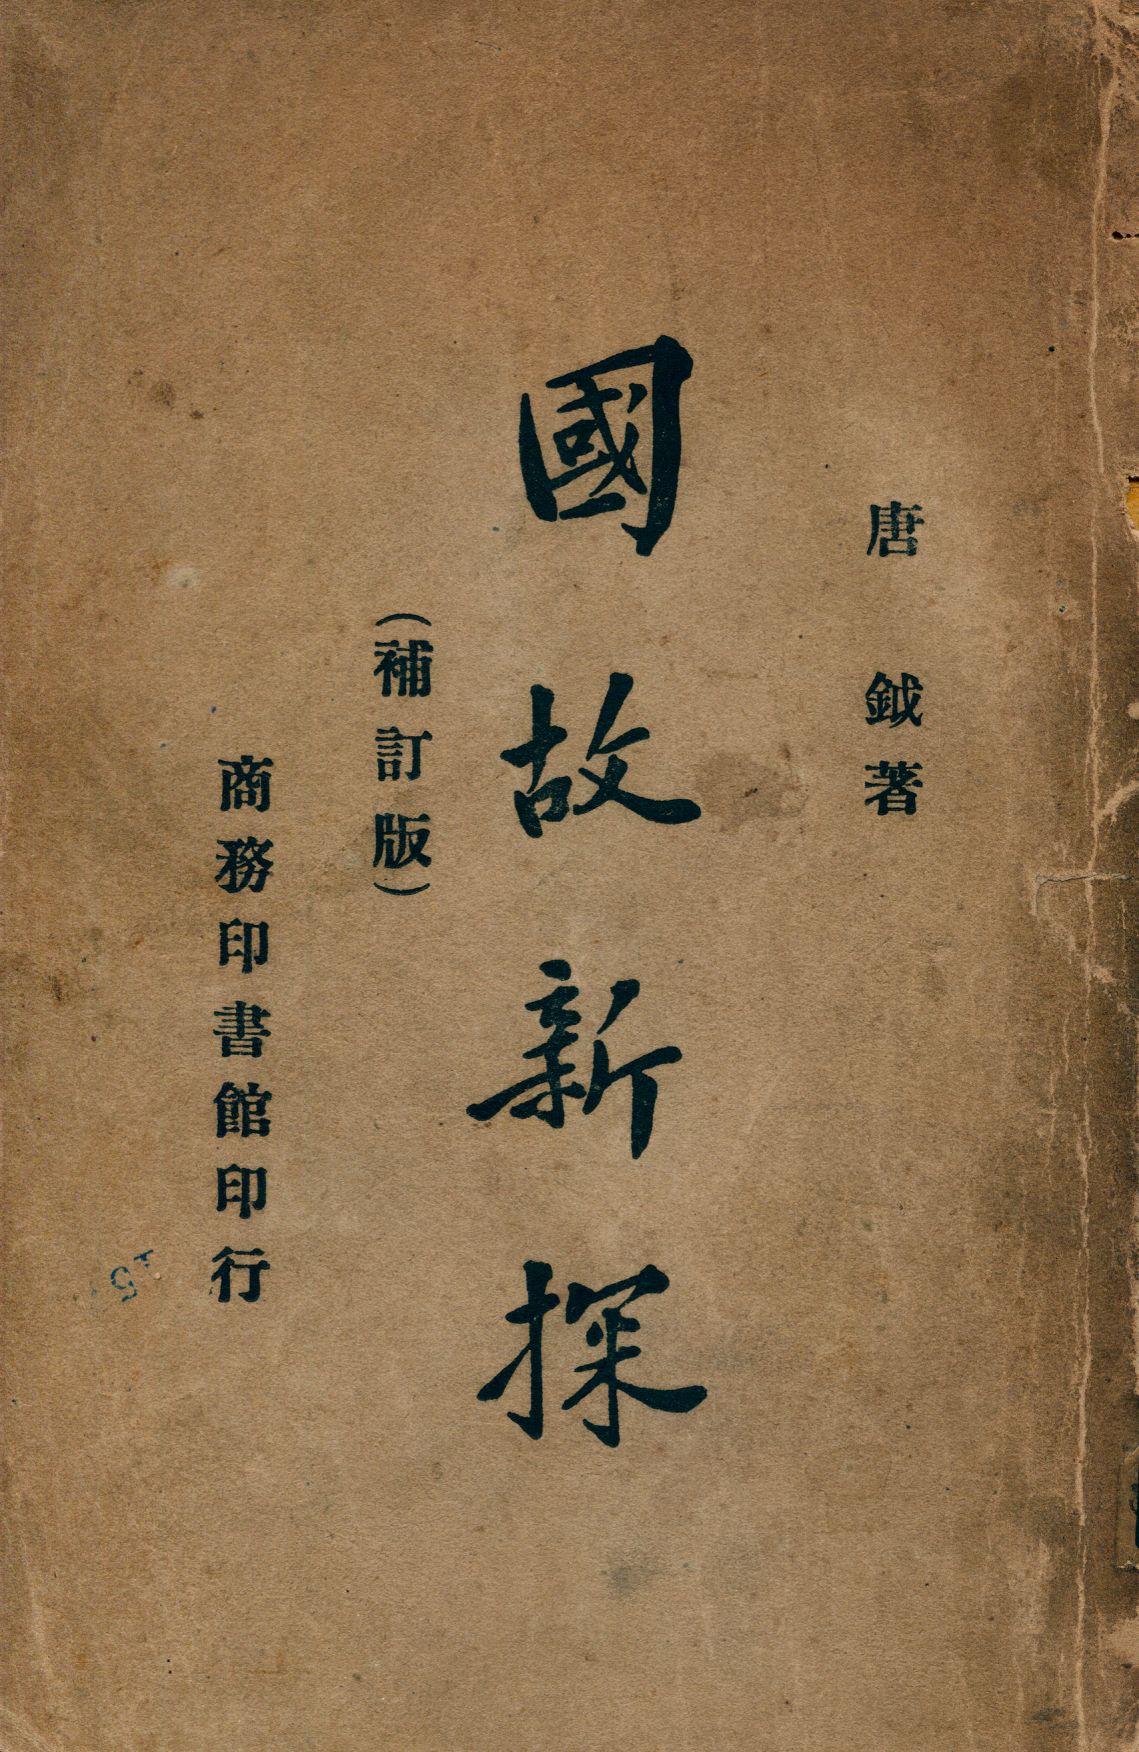 唐鉞著
國故新探
(補訂版)
商務印書館印行